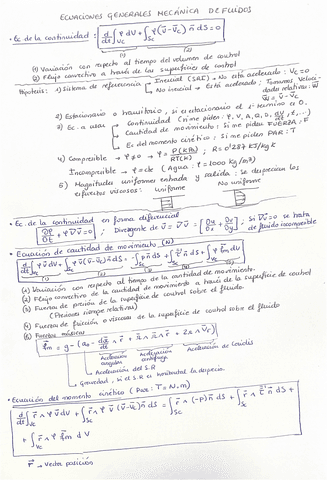 ECUACIONES GENERALES MECÁNICA DE FLUIDOS
• Ec de la continuidad: d/dt ∫Vc ρ dV + ∫Sc ρ (v̄ - v̄c) n̄ dS = 0
(1) (2)
(1) Variación con respecto al tiempo del volumen de control
(2) Flujo convectivo a través de las superficies de control
Hipótesis: 1) Sistema de referencia Inercial (SRI) → No está acelerado; Vc = 0
No inercial → Está acelerado; Tomamos velocidad relativa: W̄
W̄ = v̄ - v̄c
2) Estacionario o transitorio, si es estacionario el 1er término es 0.
3) Ec. a usar Continuidad (me piden: ρ, V, A, Q, D, t, ...)
Cantidad de movimiento: Si me piden FUERZA, F
Ec del momento cinético: Si me piden PAR: T
4) Compresible → ρ ≠ → ρ = P(kPa)/RT(K) ; R = 0'287 kJ/kg K
Incompresible → ρ = cte (Agua: ρ = 1000 kg/m³)
5) Magnitudes uniformes entrada y salida: se desprecian los
esfuerzos viscosos:
uniforme No uniforme
• Ec. de la continuidad en forma diferencial
∂ρ/∂t + ρ∇v̄ = 0 ; Divergente de v̄ = ∇v̄ ; si ∇v̄ = 0 se trata
de fluido incompresible
• Ecuación de cantidad de movimiento (N)
d/dt ∫Vc ρ v̄ dV + ∫Sc ρ v̄ (v̄ - v̄c) n̄ dS = ∫Sc -p n̄ dS + ∫Sc τ̄ n̄ dS + ∫Vc ρ f̄m dV
(1) (2) (3) (4) (5)
(1) Variación con respecto al tiempo de la cantidad de movimiento.
(2) Flujo convectivo de la cantidad de movimiento a través de la superficie de control
(3) Fuerzas de presión de la superficie de control sobre el fluido.
(Presiones siempre relativas)
(4) Fuerzas de fricción o viscosas de la superficie de control sobre el fluido
(5) Fuerzas másicas
Aceleración angular
Aceleración centrífuga
Aceleración de Coriolis
Aceleración del S.R
Gravedad, si el S.R es horizontal la desprecio.
• Ecuación del momento cinético (Par: T = N.m)
d/dt ∫Vc r̄ ∧ ρ v̄ dV + ∫Sc r̄ ∧ ρ v̄ (v̄ - v̄c) n̄ dS = ∫Sc r̄ ∧ (-p) n̄ dS + ∫Sc r̄ ∧ τ̄ n̄ dS +
+ ∫Vc r̄ ∧ ρ f̄m dV
r̄ → Vector posición